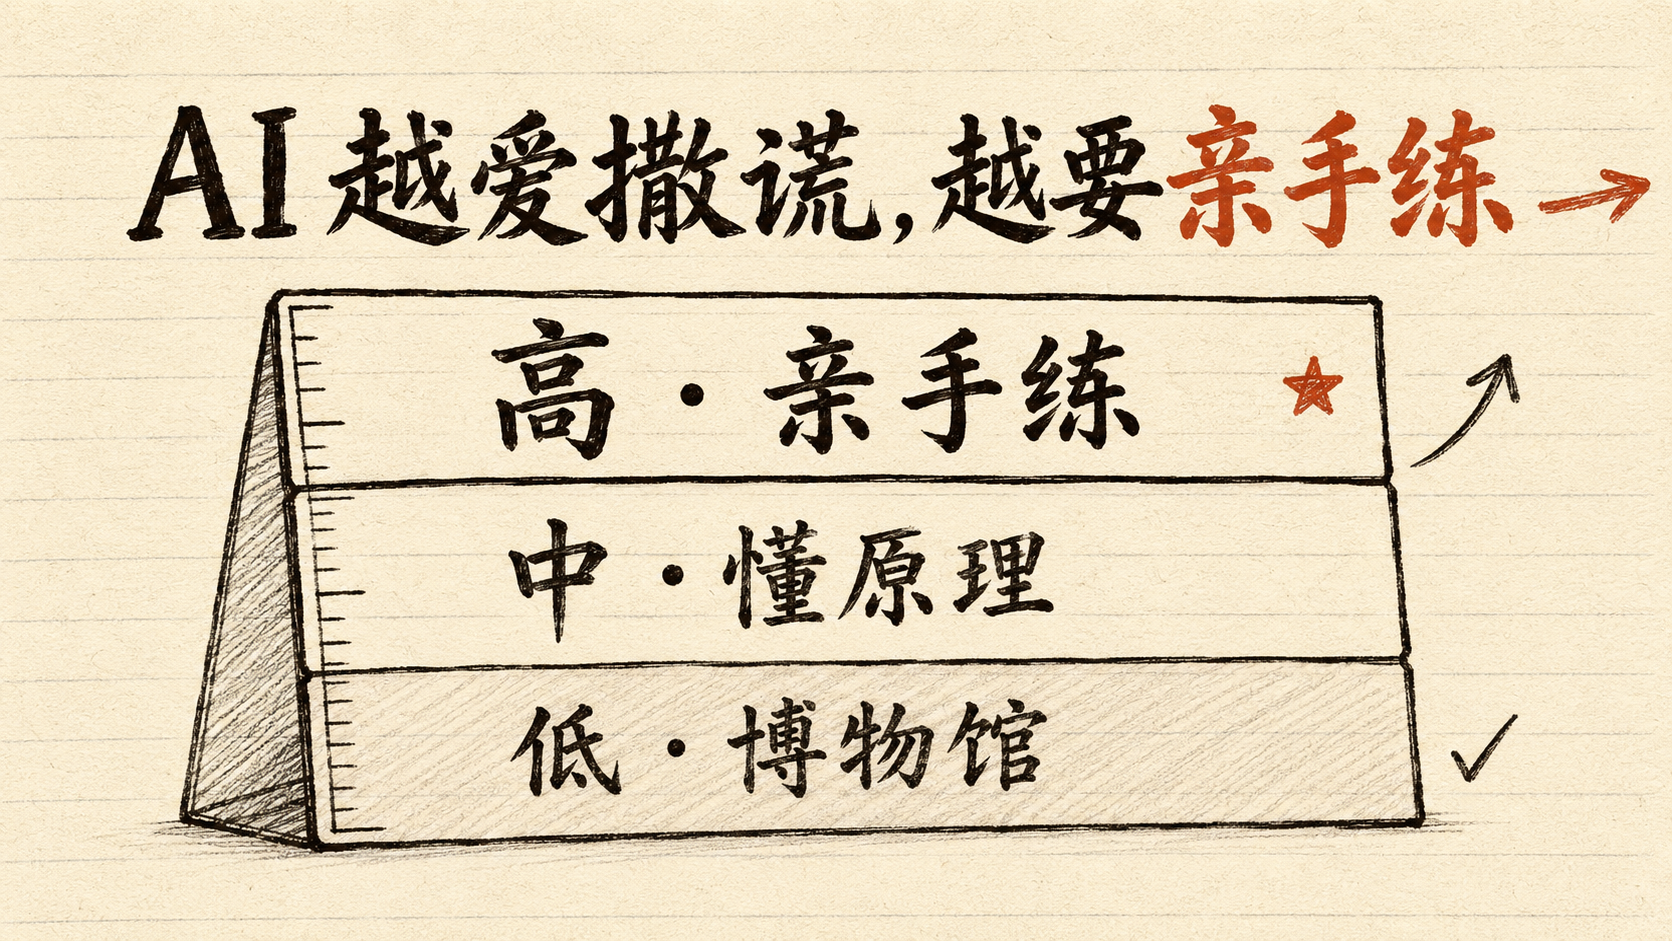 AI越爱撒谎,越要亲手练→
高·亲手练
中·懂原理
低·博物馆